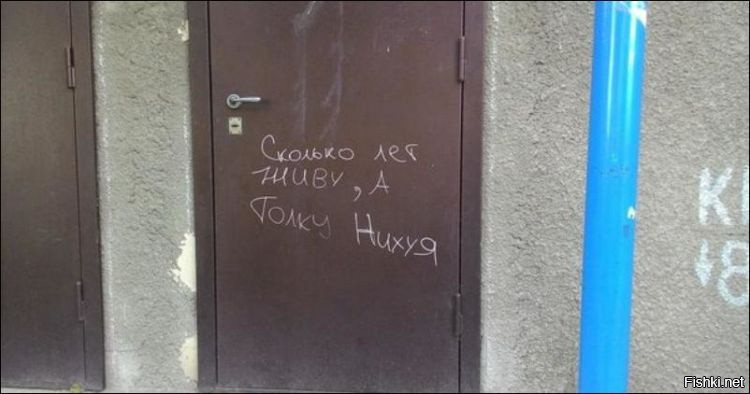 Сколько лет
живу, А
Толку Нихуя
К
8
Fishki.net